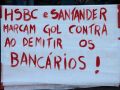 HSBC e SANTANDER
MARCAM GOL CONTRA
AO DEMITIR OS
BANCÁRIOS !